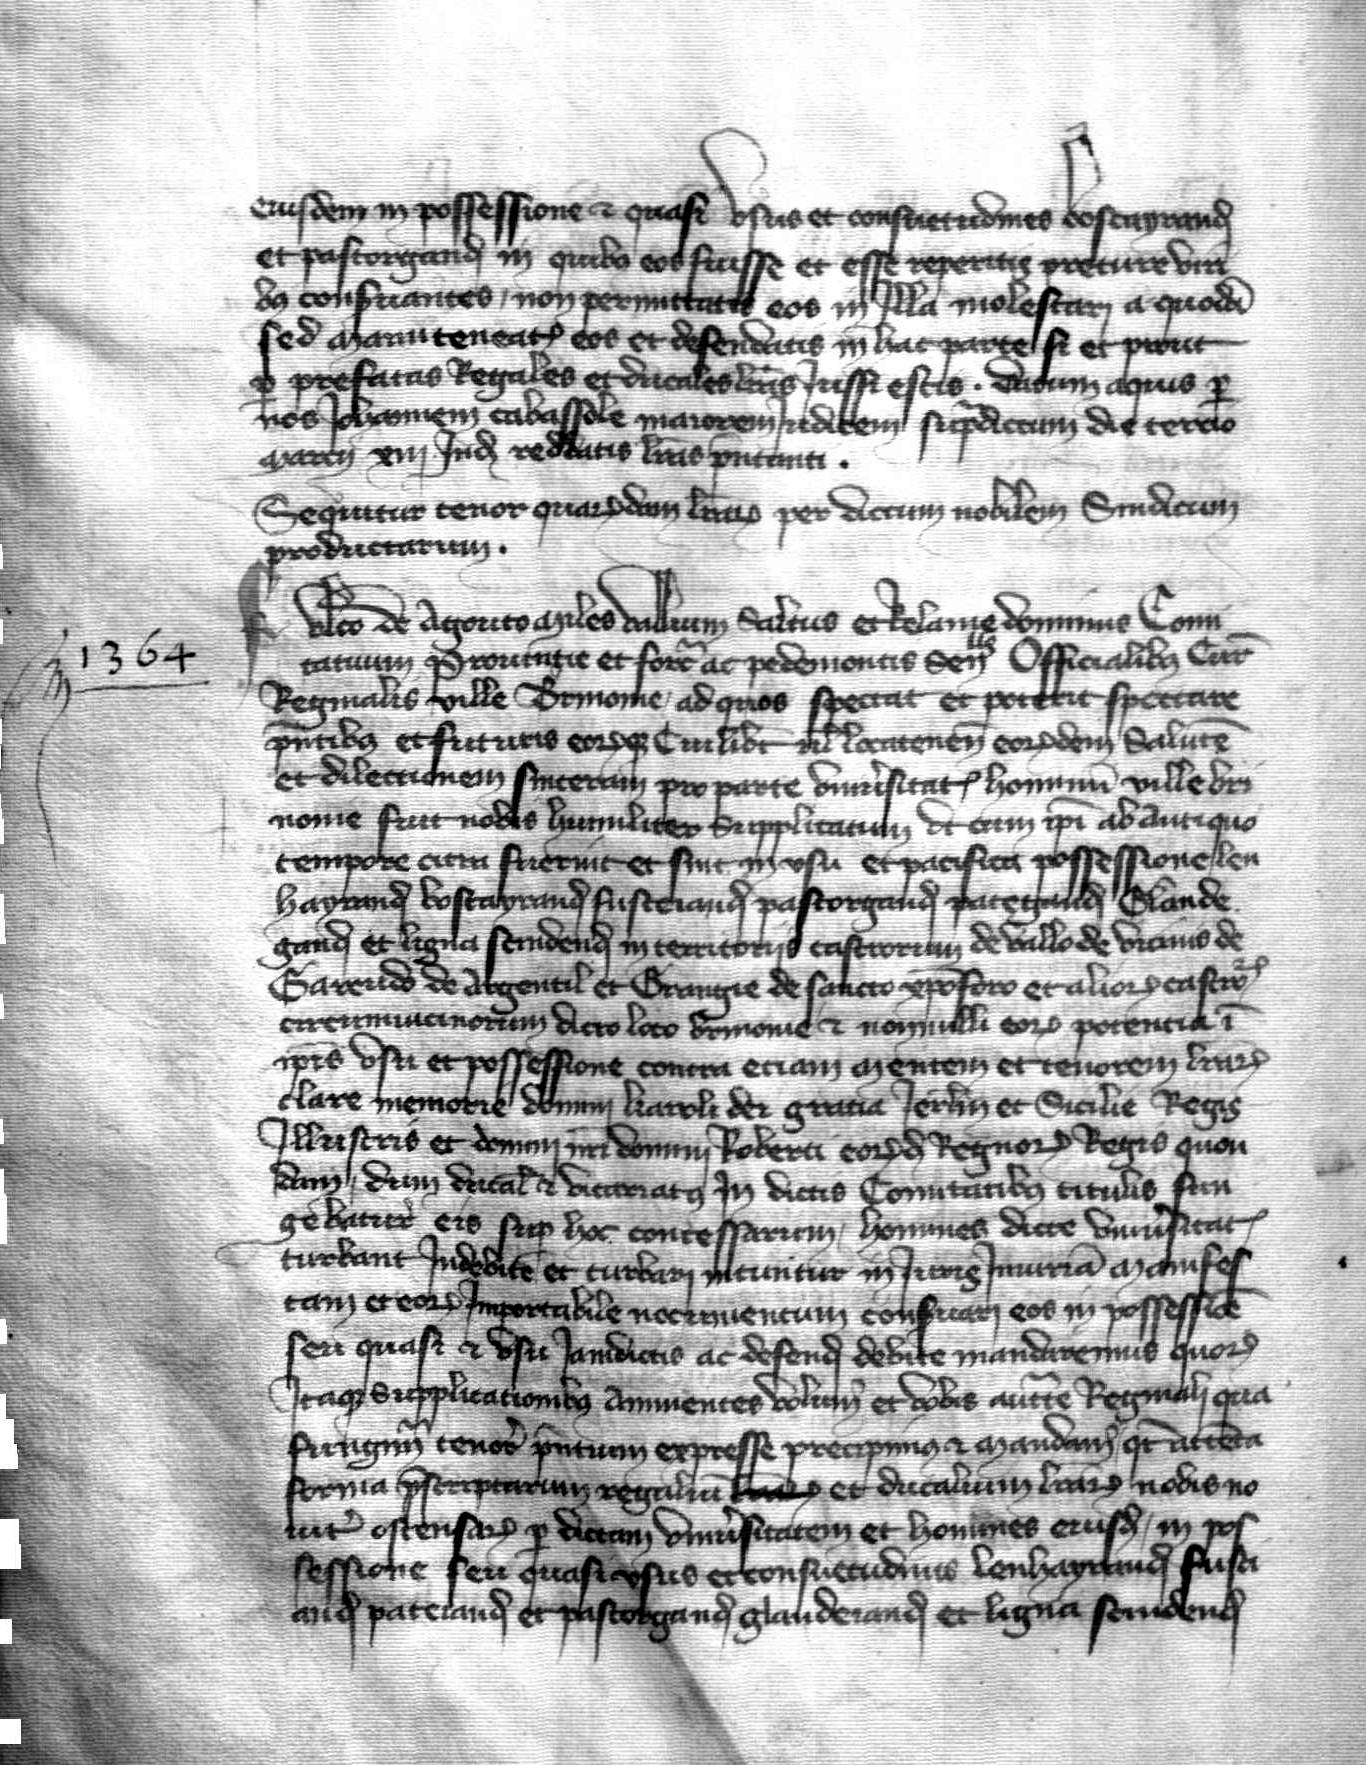 eiusdem in possessione et quasi usus et consuetudines boscayrandi
et pastorgandi in quibus eos fuisse et esse reperitis
bus conservantes non permittatis eos in Illa molestari a quoda
sed manuteneatis eos et defendatis in hac parte si et prout
per prefatas Regales et ducales litteras Jussi estis. datum aquis per
nos Johannem cabassole maiorem Judicem supradictum die tercio
marcii xiii Ind redditis litteris presentanti.
Sequitur tenor quarumdam litterarum per dictum nobilem Sindicum
productarum.
1364
fulco de Agouto miles vallium Saltus et Relanie dominus Comi
tatuum Provincie et forc ac pedemontis Senlls Officialibus Cur
Reginalis ville Brinonie ad quos spectat et poterit spectare
pntibus et futuris eorumque Cuilibet vel locatenen eorumdem Salute
et dilectionem sinceram pro parte universitatis hominum ville bri
nonie fuit nobis humiliter Supplicatum ut cum ipi ab antiquo
tempore citra fuerint et sint in usu et pacifica possessione len
hayrandi boscayrandi fusteiandi pastorgandi pategandi Glande
gandi et ligna scindendi in territoriis castrorum de vallo de
Garendo de Argentil et Grangie de sancto et aliorum castrorum
circumvicinorum dicto loco brinonie et nonnulli eorum potencia i
ipis usu et possessione contra etiam mentem et tenorem litterarum
clare memorie domini karoli dei gratia Jerlm et Sicilie Regis
Illustris et domini nri domini Roberti eorumdem Regnorum Regis quon
dam dum ducal et vicariatus In dictis Comitatibus titulis fun
gebatur eis sup hoc concessarum homines dicte universitatis
turbant Indebite et turbari nituntur in Iuris Iniuria manifes
tam et eorum Importabile nocumentum conservari eos in possessione
seu quasi et usu Jamdictis ac defendi debite mandaremus quorum
Itaque Supplicationibus Annuentes volumus et vobis aucte Reginali qua
fungimur tenore pntium expresse precipimus et mandamus qt attenta
forma prescriptarum regalium et ducalium litterarum nobis no
viter ostensarum per dictam universitatem et homines eiusdem in pos
sessione seu quasi usus et consuetudinis lenhayrandi fuste
andi pateiandi et pastorgandi glandeiandi et ligna scindendi